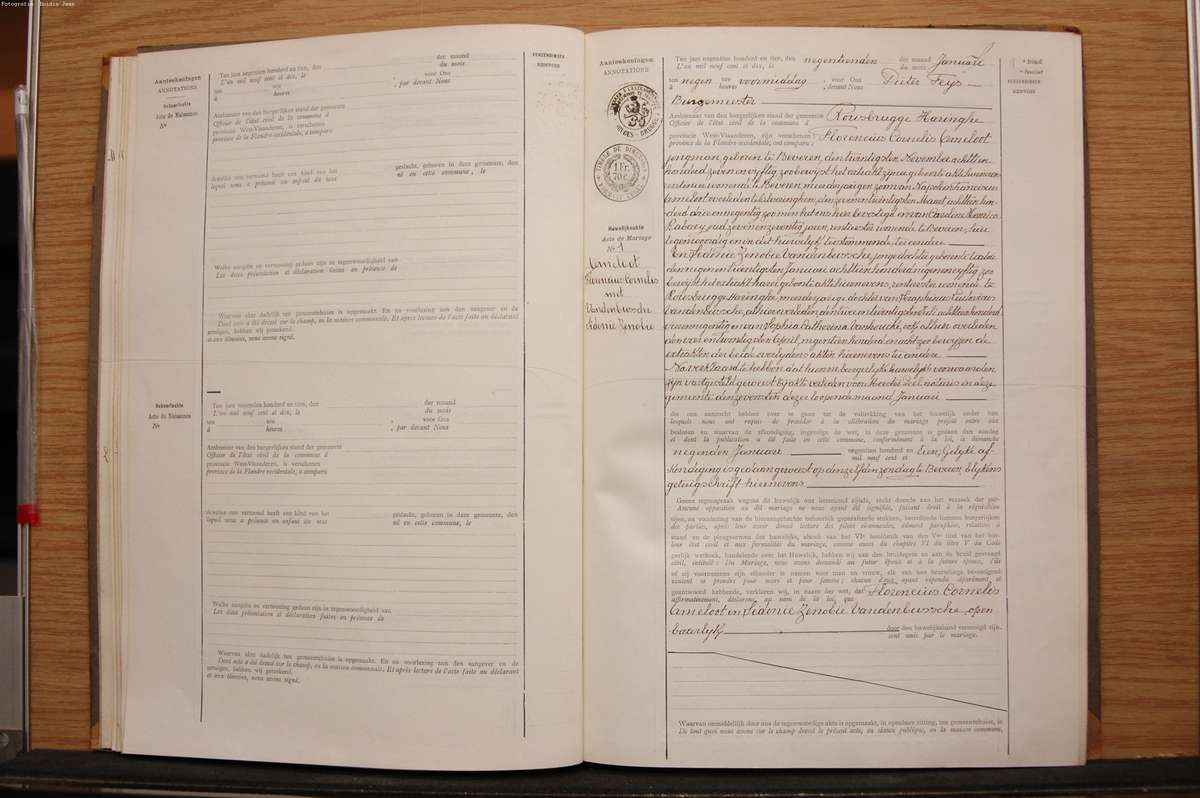 Fotografie Huidis Jean
Aanteekeningen
ANNOTATIONS
Geboorteakte
Acte de Naissance
No
Ten jare negentien honderd en tien, den der maand
L'an mil neuf cent et dix, le du mois
ten ten voor Ons
à heures , par devant Nous
Ambtenaar van den burgerlijken stand der gemeente
Officier de l'état civil de la commune à
provincie West-Vlaanderen, is verschenen
province de la Flandre occidentale, a comparu
dewelke ons vertoond heeft een kind van het geslacht, geboren in deze gemeente, den
lequel nous a présenté un enfant du sexe né en cette commune, le
Welke aangifte en vertooning gedaan zijn in tegenwoordigheid van
Les dites présentation et déclaration faites en présence de
Waarvan akte dadelijk ten gemeentehuize is opgemaakt. En na voorlezing aan den aangever en de
Dont acte a été dressé sur le champ, en la maison communale. Et après lecture de l'acte faite au déclarant
getuigen, hebben wij geteekend.
et aux témoins, nous avons signé.
VERZENDINGEN
RENVOIS
Geboorteakte
Acte de Naissance
No
Ten jare negentien honderd en tien, den der maand
L'an mil neuf cent et dix, le du mois
ten ten voor Ons
à heures , par devant Nous
Ambtenaar van den burgerlijken stand der gemeente
Officier de l'état civil de la commune à
provincie West-Vlaanderen, is verschenen
province de la Flandre occidentale, a comparu
dewelke ons vertoond heeft een kind van het geslacht, geboren in deze gemeente, den
lequel nous a présenté un enfant du sexe né en cette commune, le
Welke aangifte en vertooning gedaan zijn in tegenwoordigheid van
Les dites présentation et déclaration faites en présence de
Waarvan akte dadelijk ten gemeentehuize is opgemaakt. En na voorlezing aan den aangever en de
Dont acte a été dressé sur le champ, en la maison communale. Et après lecture de l'acte faite au déclarant
getuigen, hebben wij geteekend.
et aux témoins, nous avons signé.
Aanteekeningen
ANNOTATIONS
TIMBRE DE DIMENSION
1 Fr.
70 c.
Huwelijksakte
Acte de Mariage
No 1
Cameloot
Florencius Cornelis
met
Vandenbussche
Sidonie Zenobie
Ten jare negentien honderd en tien, den negentienden der maand Januari
L'an mil neuf cent et dix, le du mois
ten negen ten voormiddag voor Ons Pieter Feys
à heures , devant Nous
Burgemeester
Ambtenaar van den burgerlijken stand der gemeente Rousbrugge Haringhe
Officier de l'état civil de la commune à
provincie West-Vlaanderen, zijn verschenen Florencius Cornelis Cameloot
province de la Flandre occidentale, ont comparu
jongman, geboren te Beveren, den twintigsten November achttien
honderd zeven en vyftig, zoo bewyst het extrakt zijner geboorte akte hiernevens
rentenier wonende te Beveren, meerderjarigen zoon van Napoleon Franciscus
Cameloot overleden te den zeven en twintigsten Maart achttien hon-
derd drie en negentig en van Caroline
Rabaey, oud zeven en zeventig jaren, rentenierster wonende te Beveren, hier
tegenwoordig en in dit huwelijk toestemmende, ter eendre
En Sidonie Zenobie Vandenbussche, jonge dochter, geboren te
den negen en twintigsten Januari achttien honderd negen en vyftig, zoo
bewijst het extrakt harer geboorte akte hiernevens, rentenierster wonende te
Rousbrugge Haringhe, meerderjarige dochter van Seraphinus
Vandenbussche, alhier overleden den achttien honderd
en van Sophia Catherina ook alhier overleden
den vier en twintigsten April, negentien honderd en acht, zoo bewyzen de
extrakten der beide overlydens akten hiernevens ter andere
Na verklaard te hebben dat hunne burgerlijke huwelijks voorwaarden
zijn vastgesteld geweest bij akte verleden voor Meester notaris in deze
gemeente den zevensten dezer loopende maand Januari
die ons aanzocht hebben over te gaan tot de voltrekking van het huwelijk onder hen
lesquels nous ont requis de procéder à la célébration du mariage projeté entre eux
besloten en waarvan de afkondiging, ingevolge de wet, in deze gemeente is gedaan den zondag
et dont la publication a été faite en cette commune, conformément à la loi, le dimanche
negenden Januari negentien honderd en tien; Gelyke af-
mil neuf cent et
kondiging is gedaan geweest op denzelfden zondag te Beveren, blykens
getuigschrift hiernevens
Geene tegenspraak wegens dit huwelijk ons beteekend zijnde, recht doende aan het verzoek der par-
Aucune opposition au dit mariage ne nous ayant été signifiée, faisant droit à la réquisition
tijen, na voorlezing van de hieraangehechte behoorlijk geparafeerde stukken, betreffende hunnen burgerlijken
des parties, après leur avoir donné lecture des pièces ci-annexées, dûment paraphées, relatives à
stand en de pleegvormen des huwelijks, alsook van het VIe hoofdstuk van den Ve titel van het bur-
leur état civil et aux formalités du mariage, comme aussi du chapitre VI du titre V du Code
gerlijk wetboek, handelende over het Huwelijk, hebben wij van den bruidegom en aan de bruid gevraagd
civil, intitulé : Du Mariage, nous avons demandé au futur époux et à la future épouse, s'ils
of zij voornemens zijn elkander te nemen voor man en vrouw, elk van hen beurtelings bevestigend
veulent se prendre pour mari et pour femme ; chacun d'eux ayant répondu séparément et
geantwoord hebbende, verklaren wij, in naam der wet, dat Florencius Cornelis
affirmativement, déclarons au nom de la loi, que
Cameloot en Sidonie Zenobie Vandenbussche, open-
baarlyk door den huwelijksband vereenigd zijn.
sont unis par le mariage.
Waarvan onmiddellijk door ons de tegenwoordige akte is opgemaakt, in openbare zitting, ten gemeentehuize, in
De tout quoi nous avons sur le champ dressé le présent acte, en séance publique, en la maison commune,
RENVOIS